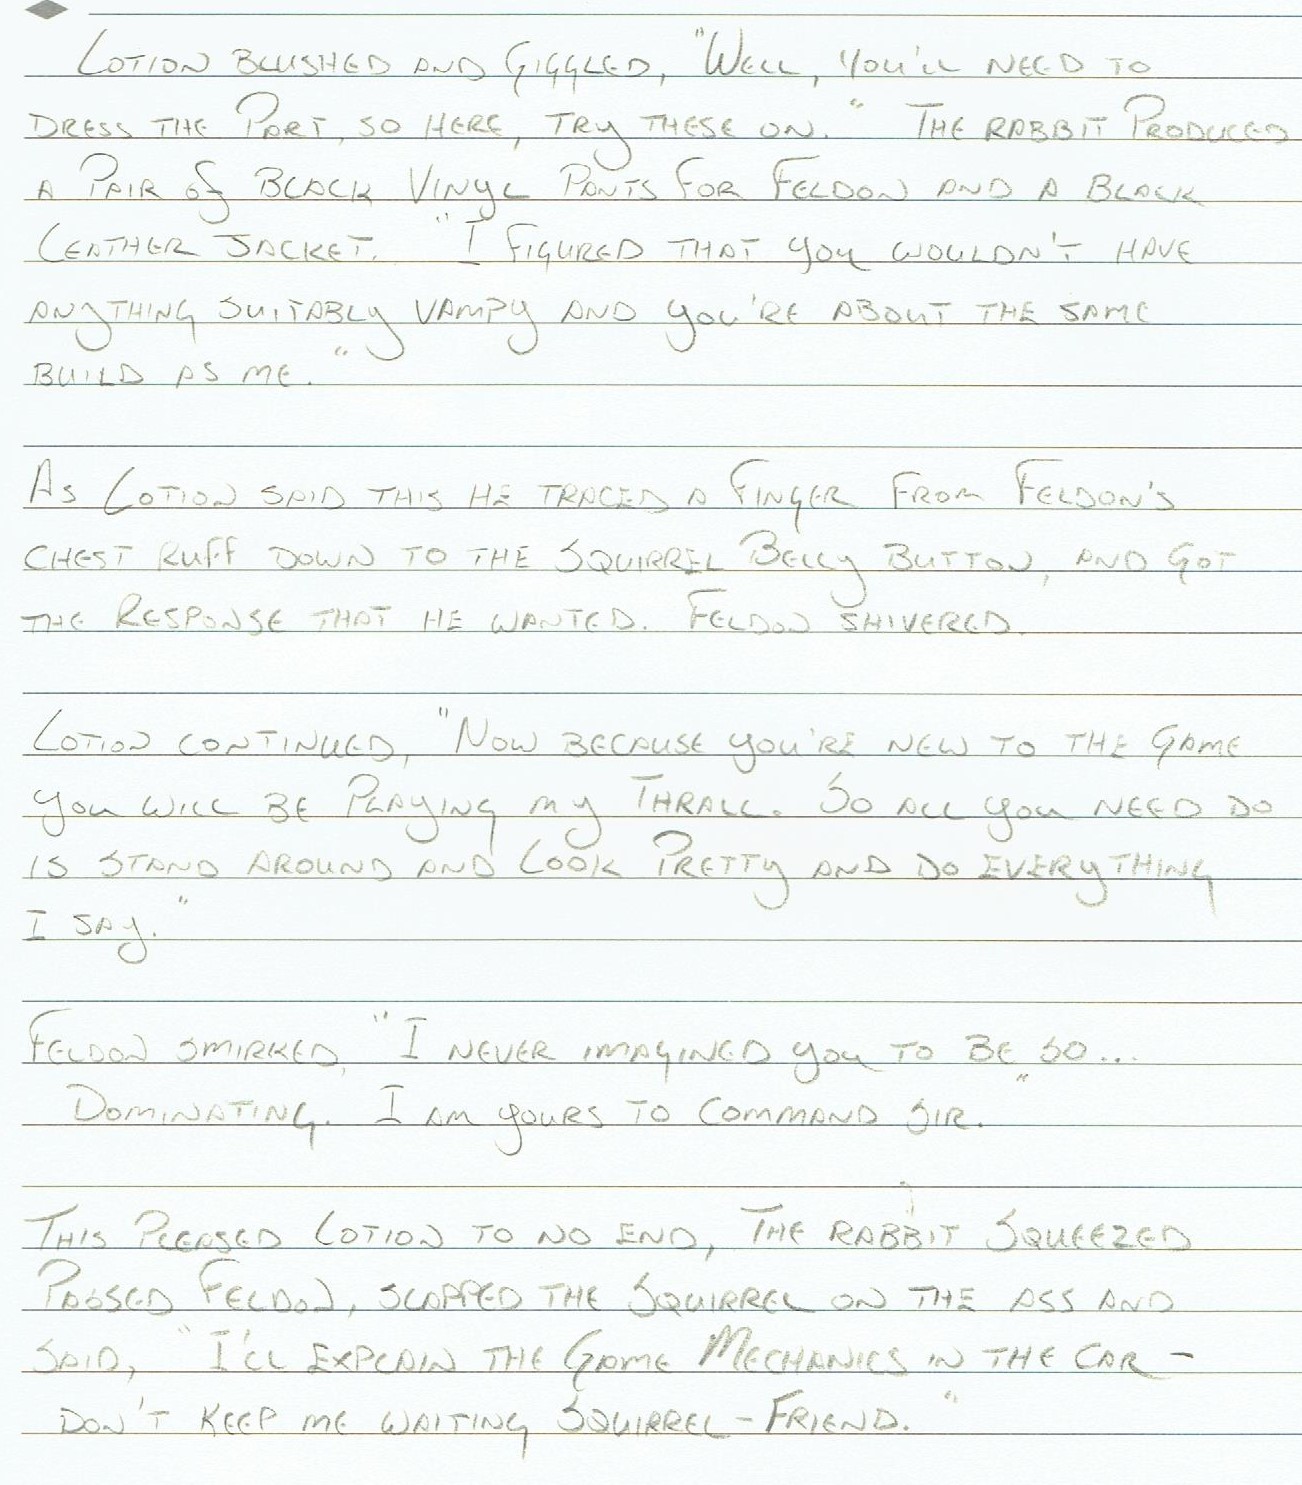 Lotion blushed and giggled, "Well, you'll need to
dress the part, so here, try these on." The rabbit produced
a pair of black vinyl pants for Feldon and a black
leather jacket. "I figured that you wouldn't have
anything suitably vampy and you're about the same
build as me."
As Lotion said this he traced a finger from Feldon's
chest ruff down to the squirrel belly button, and got
the response that he wanted. Feldon shivered.
Lotion continued, "Now because you're new to the game
you will be playing my thrall. So all you need do
is stand around and look pretty and do everything
I say."
Feldon smirked, "I never imagined you to be so...
Dominating. I am yours to command sir."
This pleased Lotion to no end, the rabbit squeezed
passed Feldon, slapped the squirrel on the ass and
said, "I'll explain the game mechanics in the car -
don't keep me waiting squirrel-friend."